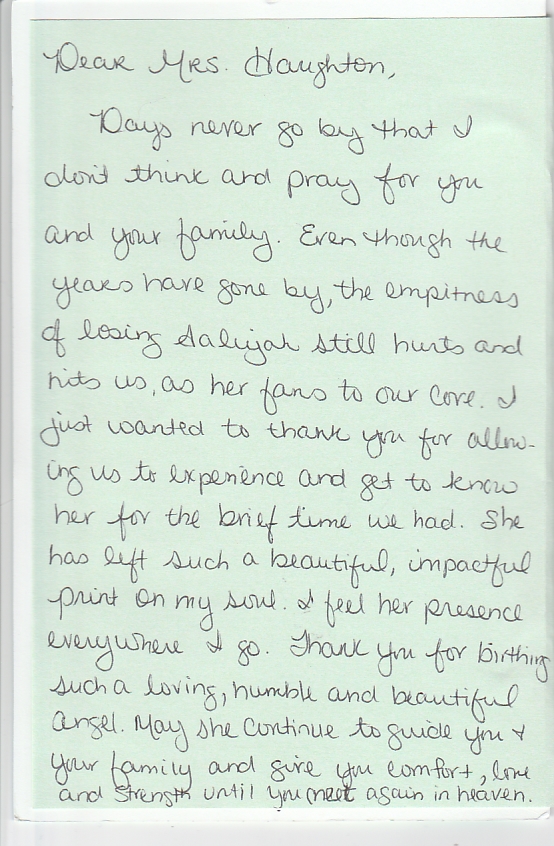 Dear Mrs. Haughton,
Days never go by that I
don't think and pray for you
and your family. Even though the
years have gone by, the empitness
of losing Aaliyah still hurts and
hits us, as her fans to our core. I
just wanted to thank you for allow-
ing us to experience and get to know
her for the brief time we had. She
has left such a beautiful, impactful
print on my soul. I feel her presence
everywhere I go. Thank you for birthing
such a loving, humble and beautiful
angel. May she continue to guide you &
your family and give you comfort, love
and strength until you meet again in heaven.